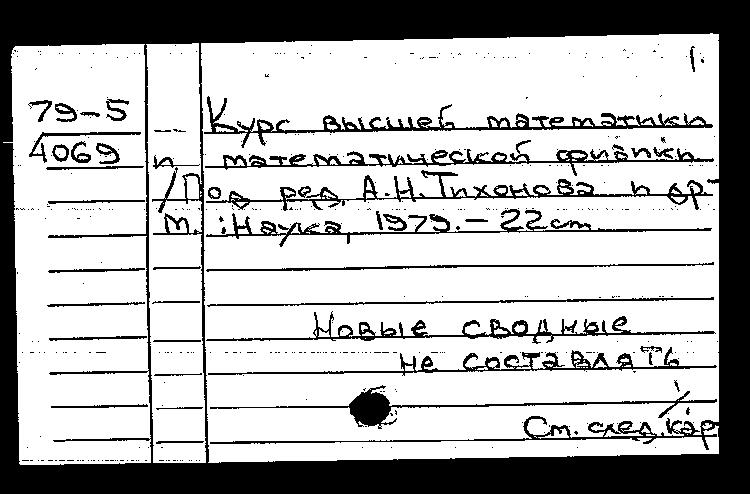 1.
79-5
4069
Курс высшей математики
и математической физики
/Под ред. А.Н.Тихонова и др-
М.:Наука, 1979.-22cm
Новые сводные
не составлять
См. след.кар